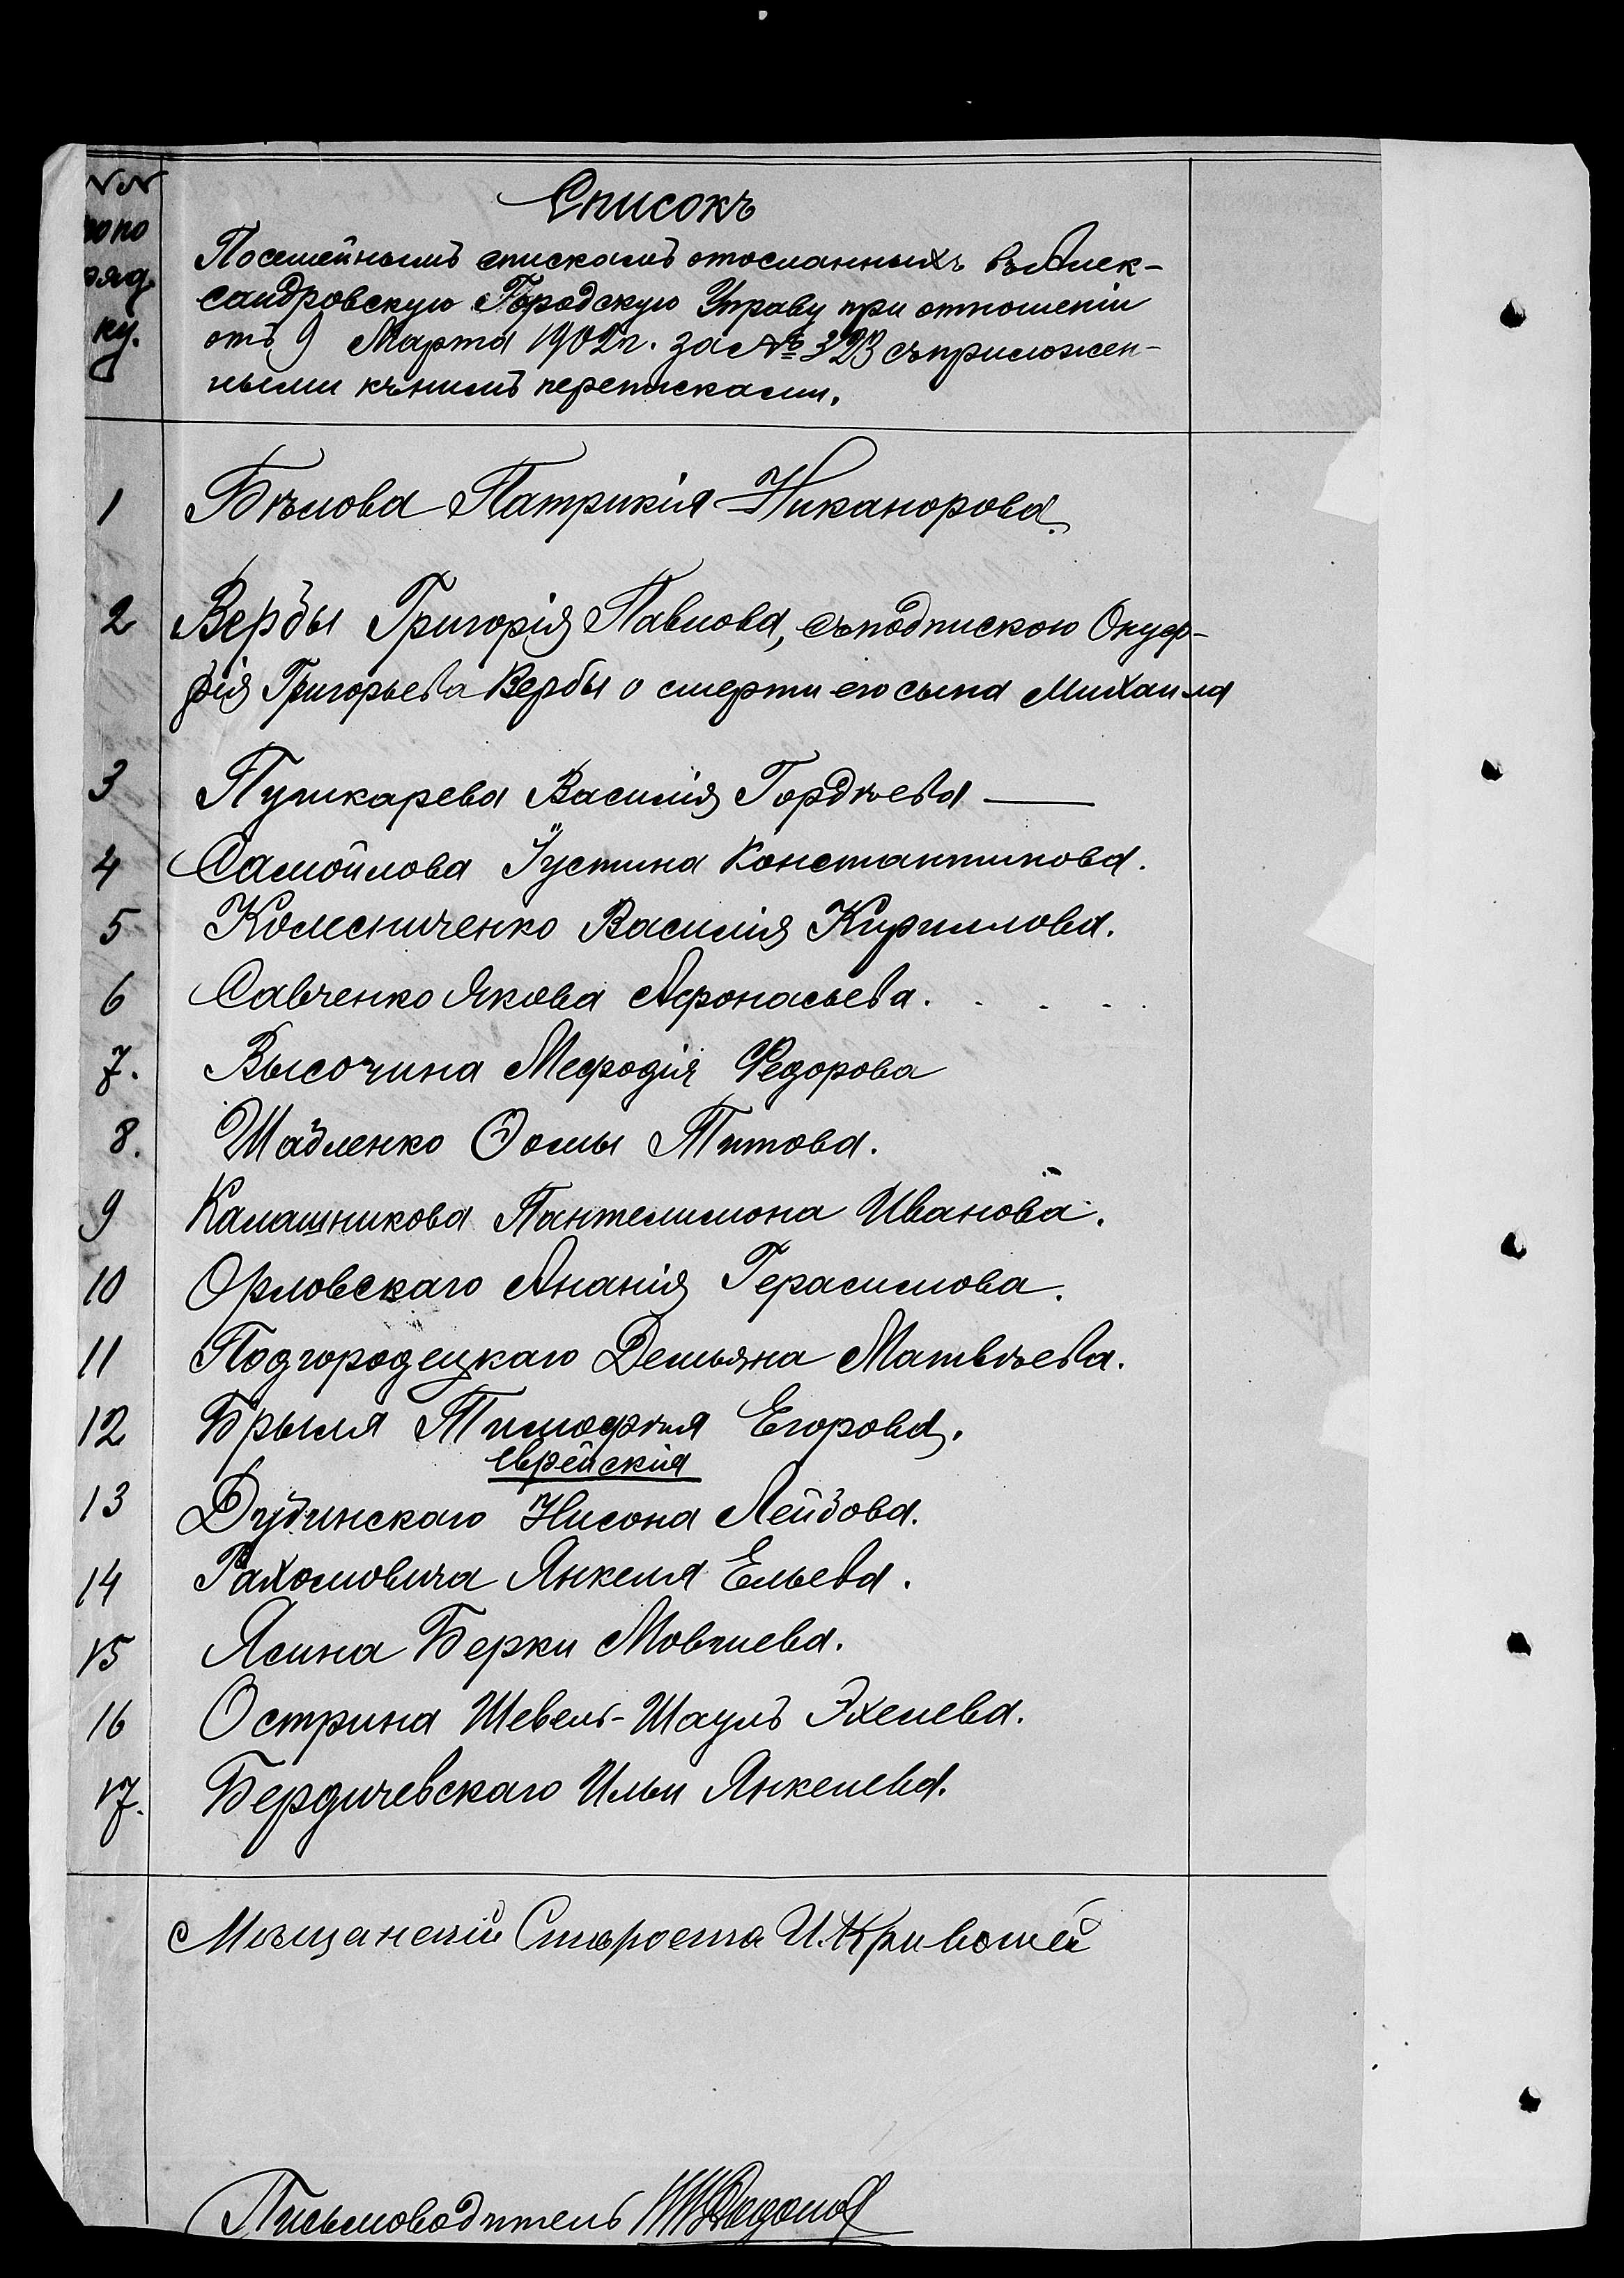 №№
по по
ряд
ку.
Списокъ
Посемейнымъ спискамъ отосланныхъ въ Алек-
сандровскую Городскую Управу при отношеніи
отъ 9 Марта 1902 г. за № 323 съ приложен-
ными къ нимъ переписками.
1 Бѣлова Патрикія Никанорова.
2 Вербы Григорія Павлова, съ подпискою Онуф-
рія Григорьева Вербы о смерти его сына Михаила
3 Пушкарева Василія Гордѣева —
4 Самойлова Іустина Константинова.
5 Колесниченко Василія Кириллова.
6 Савченко Якова Афонасьева.
7. Высочина Мефодія Федорова
8. Шабленко Ѳомы Титова.
9 Калашникова Пантелимона Иванова.
10 Орловскаго Ананія Герасимова.
11 Подгородецкаго Демьяна Матвѣева.
12 Брыля Тимофѣя Егорова.
Еврейскія
13 Дубинскаго Нисона Лейбова.
14 Рахомовича Янкеля Ельева.
15 Ясина Берки Мовшева.
16 Острина Шевель-Шауль Эхелева.
17. Бердичевскаго Ильи Янкелева.
Мѣщанскій Староста И. Кривошей
Письмоводитель